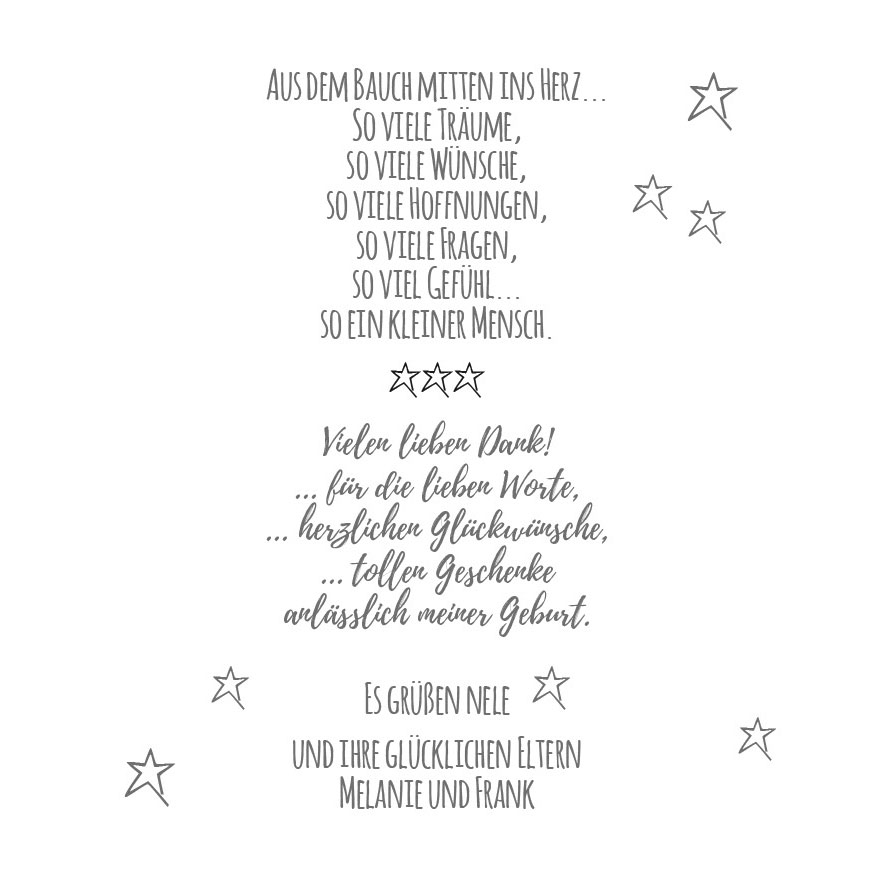 Aus dem Bauch mitten ins Herz...
So viele Träume,
so viele Wünsche,
so viele Hoffnungen,
so viele Fragen,
so viel Gefühl...
so ein kleiner Mensch.
Vielen lieben Dank!
... für die lieben Worte,
... herzlichen Glückwünsche,
... tollen Geschenke
anlässlich meiner Geburt.
Es grüßen nele
und ihre glücklichen Eltern
Melanie und Frank